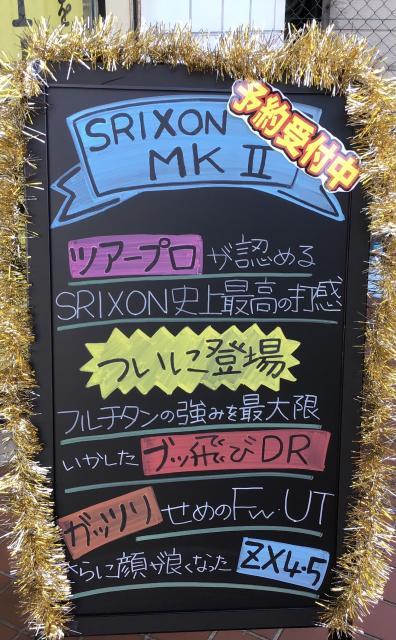 SRIXON
MK II
予約受付中
ツアープロが認める
SRIXON史上最高の打感
ついに登場
フルチタンの強みを最大限
いかしたブッ飛びDR
ガッツリせめのFw・UT
さらに顔が良くなったZX4・5